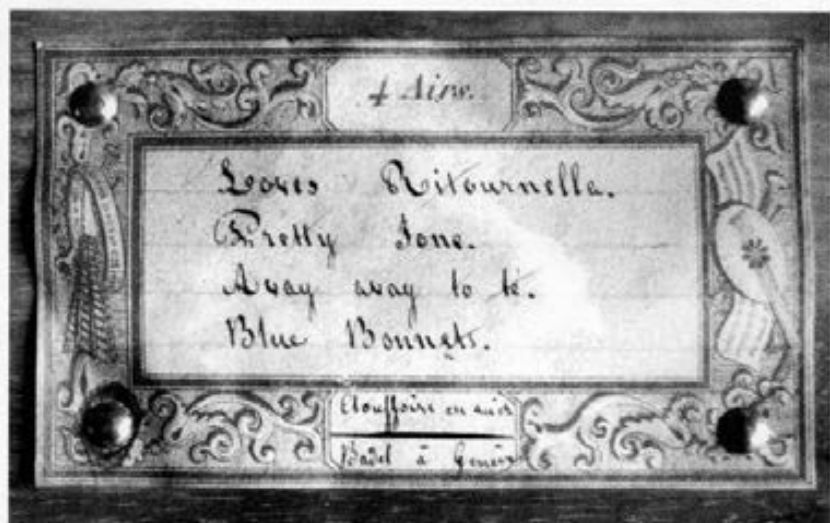 4 Airs.
Loves Ritournella.
Pretty Jone.
Away away to te.
Blue Bonnets.
Etouffoirs en acier
Badel à Genève